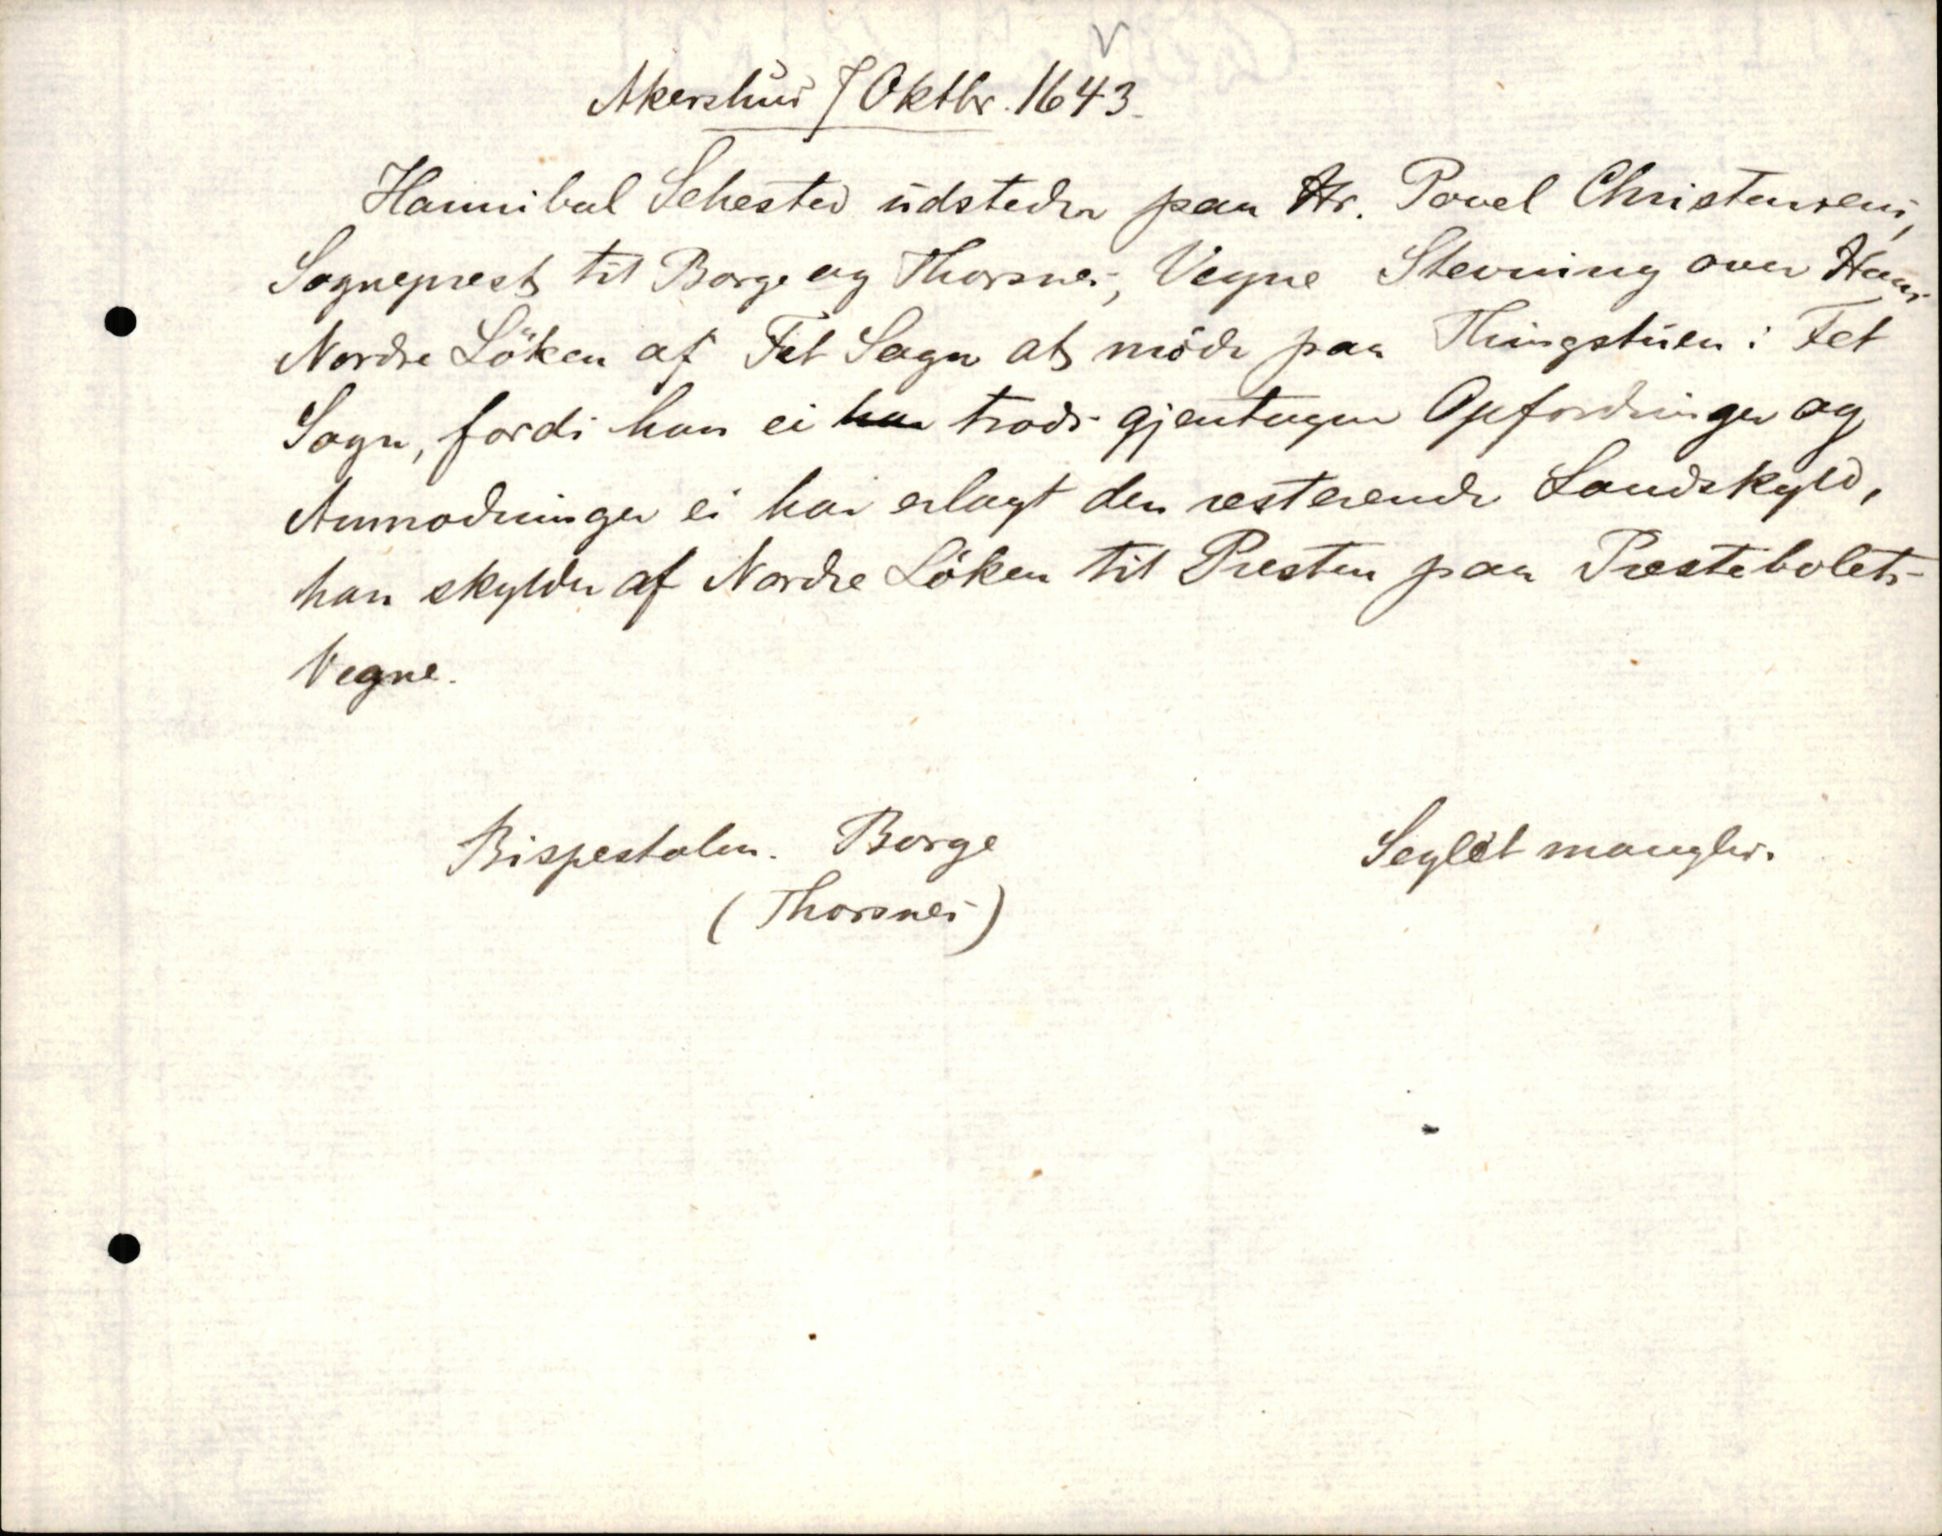 Akershus 7 Oktbr. 1643.
Hannibal Sehested udsteder paa Hr. Povel Christensens,
Sogneprest til Borge og Thorsnes, Vegne Stevning over Hans
Nordre Löken af Fet Sogn at möde paa Thingstuen i Fet
Sogn, fordi han ei har trods gjentagne Opfordringer og
Anmodninger ei har erlagt den resterende Landskyld,
han skylder af Nordre Löken til Presten paa Prestebolets
Vegne.
Bispestolen. Borge
(Thorsnes)
Seglet mangler.